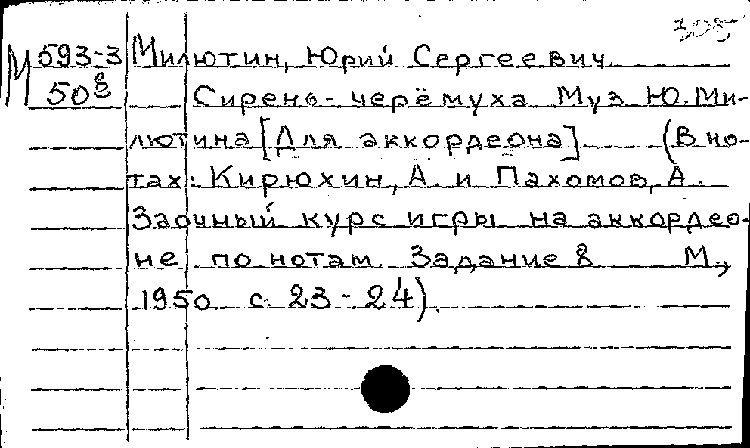 М 593-3 Милютин, Юрий Сергеевич
50 8 Сирень-черёмуха Муз Ю. Ми-
лютина [Для аккордеона] (В но-
тах: Кирюхин, А. и Пахомов, А.
Заочный курс игры на аккордео-
не по нотам. Задание 8 М.,
1950 с. 23-24).